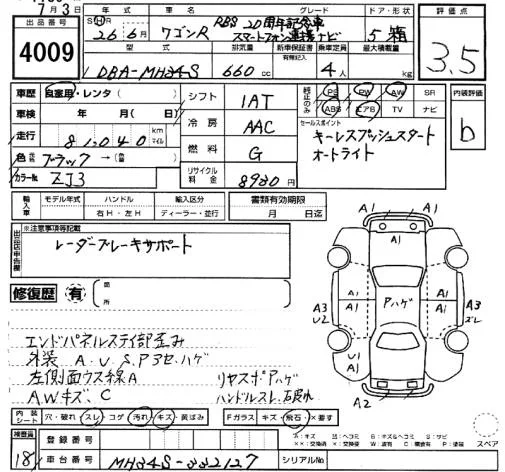 7月3日
出品番号
4009
年式 車名 グレード ドア・形状
26年6月 ワゴンR RBS 20周年記念車 5 箱
スマートフォン連携ナビ
型式 排気量 新車保証書 乗車定員 最大積載量
有無記入
DBA-MH34S 660cc 4人 kg
評価点
3.5
車歴 自家用・レンタ( )
車検 年 月( )日
走行 81040 km マイル
色 ブラック→( )
カラーNo ZJ3
シフト 1AT
冷房 AAC
燃料 G
リサイクル料金 8930円
純正のみ PS PW AW SR
ABS エアB TV ナビ
セールスポイント
キーレスプッシュスタート
オートライト
内装評価
b
輸入車 モデル年式 ハンドル 輸入区分
右H・左H ディーラー・並行
書類有効期限
月 日迄
出品店申告欄
※注意事項等記載
レーダーブレーキサポート
修復歴 有 箇所
エンドパネルステイ部歪み
外装 A.U.S.Pヌセ.ハゲ
左側面ウス線A リヤスポPハゲ
AWキズ、C ハンドルスレ、石戻水
A1
A1
A1 A1
A3 U2
Pハゲ
A3 ズレ
U1 A1
A1
A2
内装シート 穴・破れ スレ コゲ 汚れ キズ・黄ばみ
Fガラス キズ・飛石・×要す
検査員
18
登録番号
車台番号 MH34S-332127
シリアルNo
A:キズ U:ヘコミ B:キズ&ヘコミ S:サビ
××:交換済 ×:要交換 W:波有 C:腐食有 P:塗装
スペア